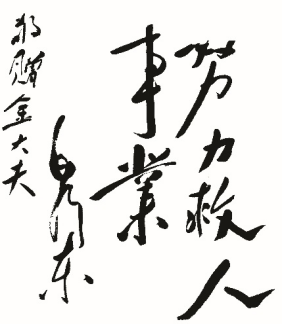 努力救人
事業
毛泽东
敬贈金大夫